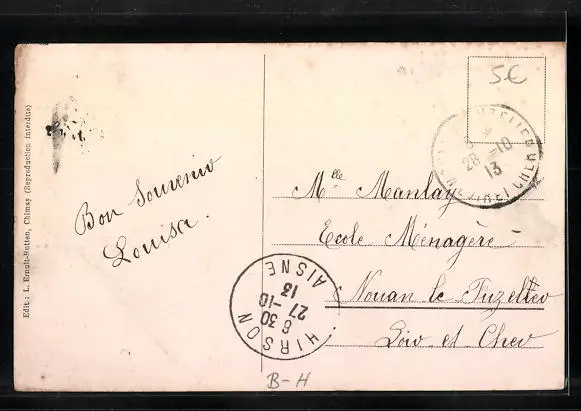 Edit: L. Ernult-Hutten, Chimay (Reproduction interdite)
Bon Souvenir
Louisa.
5€
28 -10
13
ET CHER
Mlle Manlay
Ecole Ménagère
Nouan le Fuzelier
Loir et Cher
HIRSON
6 30
27-10
13
AISNE
B-H